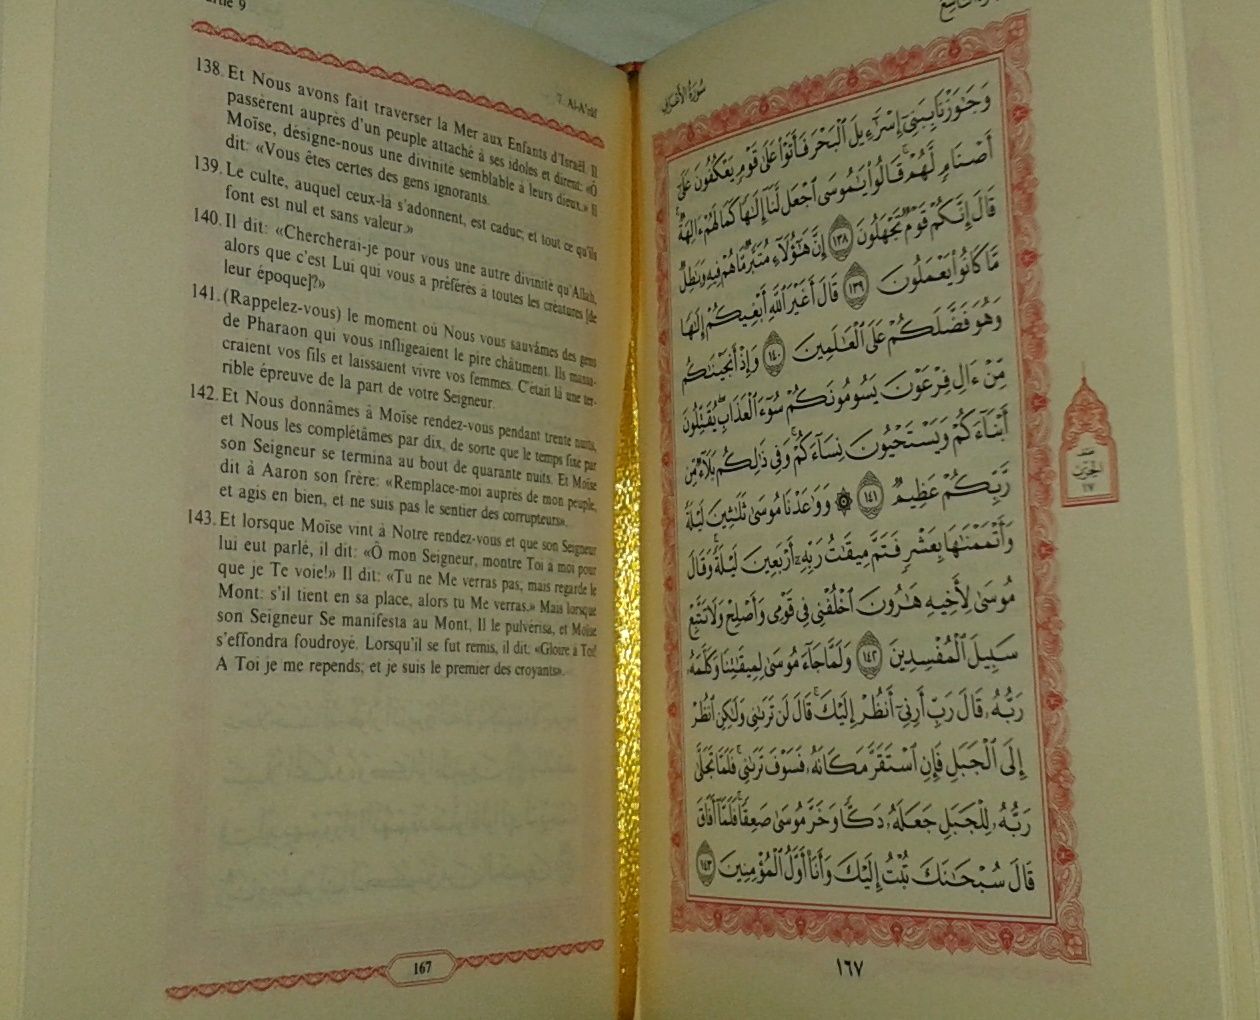 7. Al-A'râf
138. Et Nous avons fait traverser la Mer aux Enfants d'Israël. Il
passèrent auprès d'un peuple attaché à ses idoles et dirent: «Ô
Moïse, désigne-nous une divinité semblable à leurs dieux.» Il
dit: «Vous êtes certes des gens ignorants.
139. Le culte, auquel ceux-là s'adonnent, est caduc; et tout ce qu'ils
font est nul et sans valeur.»
140. Il dit: «Chercherai-je pour vous une autre divinité qu'Allah,
alors que c'est Lui qui vous a préférés à toutes les créatures [de
leur époque]?»
141. (Rappelez-vous) le moment où Nous vous sauvâmes des gens
de Pharaon qui vous infligeaient le pire châtiment. Ils massa-
craient vos fils et laissaient vivre vos femmes. C'était là une ter-
rible épreuve de la part de votre Seigneur.
142. Et Nous donnâmes à Moïse rendez-vous pendant trente nuits,
et Nous les complétâmes par dix, de sorte que le temps fixé par
son Seigneur se termina au bout de quarante nuits. Et Moïse
dit à Aaron son frère: «Remplace-moi auprès de mon peuple,
et agis en bien, et ne suis pas le sentier des corrupteurs».
143. Et lorsque Moïse vint à Notre rendez-vous et que son Seigneur
lui eut parlé, il dit: «Ô mon Seigneur, montre Toi à moi pour
que je Te voie!» Il dit: «Tu ne Me verras pas; mais regarde le
Mont: s'il tient en sa place, alors tu Me verras.» Mais lorsque
son Seigneur Se manifesta au Mont, Il le pulvérisa, et Moïse
s'effondra foudroyé. Lorsqu'il se fut remis, il dit: «Gloire à Toi!
A Toi je me repends; et je suis le premier des croyants».
167
سُورَةُ الأَعْرَافِ
وَجَٰوَزْنَا بِبَنِىٓ إِسْرَٰٓءِيلَ ٱلْبَحْرَ فَأَتَوْا۟ عَلَىٰ قَوْمٍ يَعْكُفُونَ عَلَىٰٓ
أَصْنَامٍ لَّهُمْ ۚ قَالُوا۟ يَٰمُوسَى ٱجْعَل لَّنَآ إِلَٰهًا كَمَا لَهُمْ ءَالِهَةٌ ۚ
قَالَ إِنَّكُمْ قَوْمٌ تَجْهَلُونَ ١٣٨ إِنَّ هَٰٓؤُلَآءِ مُتَبَّرٌ مَّا هُمْ فِيهِ وَبَٰطِلٌ
مَّا كَانُوا۟ يَعْمَلُونَ ١٣٩ قَالَ أَغَيْرَ ٱللَّهِ أَبْغِيكُمْ إِلَٰهًا
وَهُوَ فَضَّلَكُمْ عَلَى ٱلْعَٰلَمِينَ ١٤٠ وَإِذْ أَنجَيْنَٰكُم
مِّنْ ءَالِ فِرْعَوْنَ يَسُومُونَكُمْ سُوٓءَ ٱلْعَذَابِ ۖ يُقَتِّلُونَ
أَبْنَآءَكُمْ وَيَسْتَحْيُونَ نِسَآءَكُمْ ۚ وَفِى ذَٰلِكُم بَلَآءٌ مِّن
رَّبِّكُمْ عَظِيمٌ ١٤١ ۞ وَوَٰعَدْنَا مُوسَىٰ ثَلَٰثِينَ لَيْلَةً
وَأَتْمَمْنَٰهَا بِعَشْرٍ فَتَمَّ مِيقَٰتُ رَبِّهِۦٓ أَرْبَعِينَ لَيْلَةً ۚ وَقَالَ
مُوسَىٰ لِأَخِيهِ هَٰرُونَ ٱخْلُفْنِى فِى قَوْمِى وَأَصْلِحْ وَلَا تَتَّبِعْ
سَبِيلَ ٱلْمُفْسِدِينَ ١٤٢ وَلَمَّا جَآءَ مُوسَىٰ لِمِيقَٰتِنَا وَكَلَّمَهُۥ
رَبُّهُۥ قَالَ رَبِّ أَرِنِىٓ أَنظُرْ إِلَيْكَ ۚ قَالَ لَن تَرَىٰنِى وَلَٰكِنِ ٱنظُرْ
إِلَى ٱلْجَبَلِ فَإِنِ ٱسْتَقَرَّ مَكَانَهُۥ فَسَوْفَ تَرَىٰنِى ۚ فَلَمَّا تَجَلَّىٰ
رَبُّهُۥ لِلْجَبَلِ جَعَلَهُۥ دَكًّا وَخَرَّ مُوسَىٰ صَعِقًا ۚ فَلَمَّآ أَفَاقَ
قَالَ سُبْحَٰنَكَ تُبْتُ إِلَيْكَ وَأَنَا۠ أَوَّلُ ٱلْمُؤْمِنِينَ ١٤٣
نصف
الحزب
١٧
١٦٧